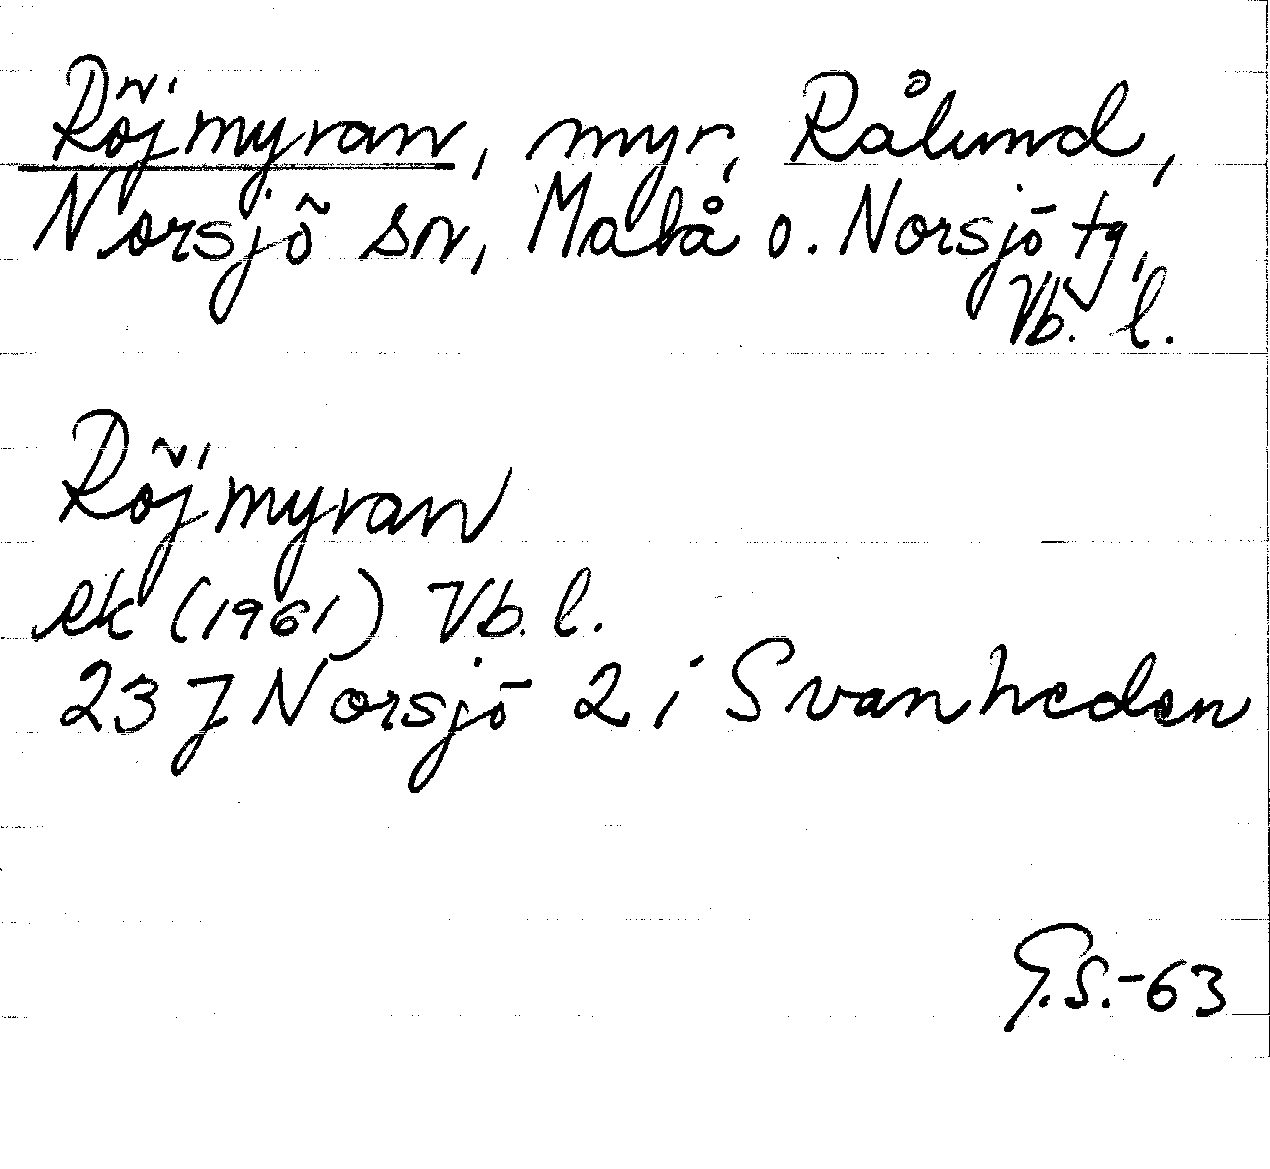 Röjmyran, myr, Rålund,
Norsjö sn, Malå o. Norsjö tg,
Vb. l.
Röjmyran
ek (1961) Vb. l.
23 J Norsjö 2 i Svanheden
G.S.-63